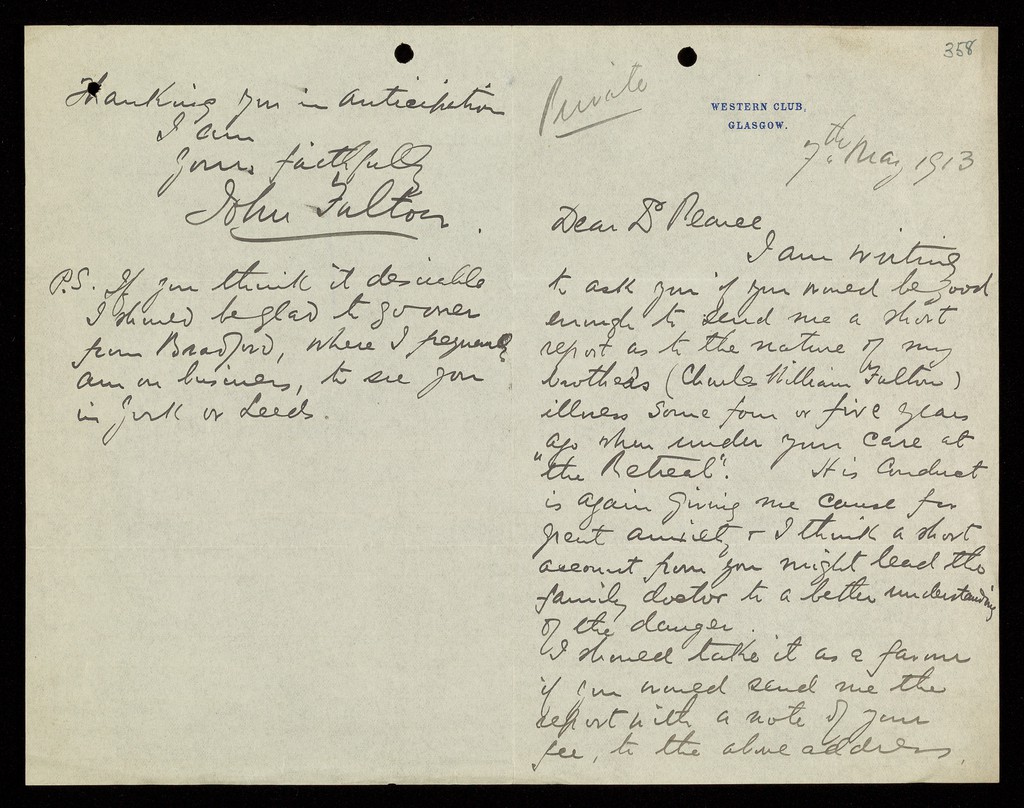 358
Private
WESTERN CLUB,
GLASGOW.
7th May 1913
Dear Dr Pearce
I am writing
to ask you if you would be good
enough to send me a short
report as to the nature of my
brothers (Charles William Fulton)
illness some four or five years
ago when under your care at
"the Retreat". His conduct
is again giving me cause for
great anxiety & I think a short
account from you might lead the
family doctor to a better understanding
of the danger.
I should take it as a favour
if you would send me the
report with a note of your
fee, to the above address.
Thanking you in anticipation
I am
yours faithfully
John Fulton.
P.S. If you think it desirable
I should be glad to go over
from Bradford, where I frequently
am on business, to see you
in York or Leeds.